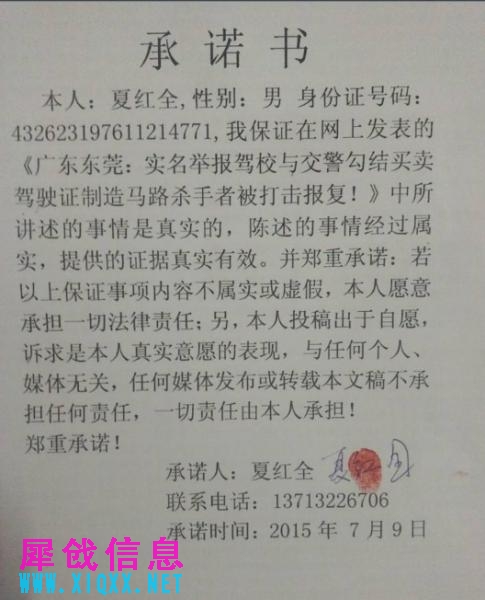 承诺书
本人：夏红全,性别：男 身份证号码：
432623197611214771,我保证在网上发表的
《广东东莞：实名举报驾校与交警勾结买卖
驾驶证制造马路杀手者被打击报复！》中所
讲述的事情是真实的，陈述的事情经过属
实，提供的证据真实有效。并郑重承诺：若
以上保证事项内容不属实或虚假，本人愿意
承担一切法律责任;另,本人投稿出于自愿,
诉求是本人真实意愿的表现，与任何个人、
媒体无关，任何媒体发布或转载本文稿不承
担任何责任，一切责任由本人承担！
郑重承诺！
承诺人：夏红全 夏红全
联系电话：13713226706
承诺时间：2015年 7月9日
犀戗信息
WWW.XIQXX.NET